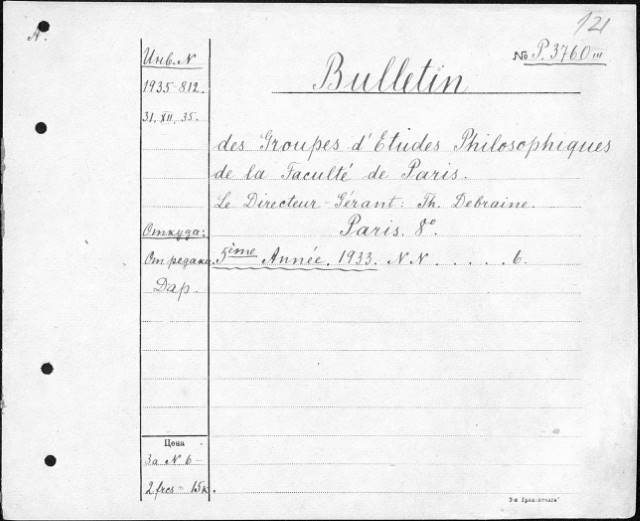 121
A.
№ P. 3760 III
Инв. N
1935-812.
31. XII. 35.
Bulletin
des Groupes d'Etudes Philosophiques
de la Faculté de Paris.
Le Directeur-Gérant: Th. Debraine.
Paris. 8°.
Откуда:
От редакц.
5ème Année. 1933. N.N. . . . . 6.
Дар.
Цена
За N 6 -
2 frcs - 15к.